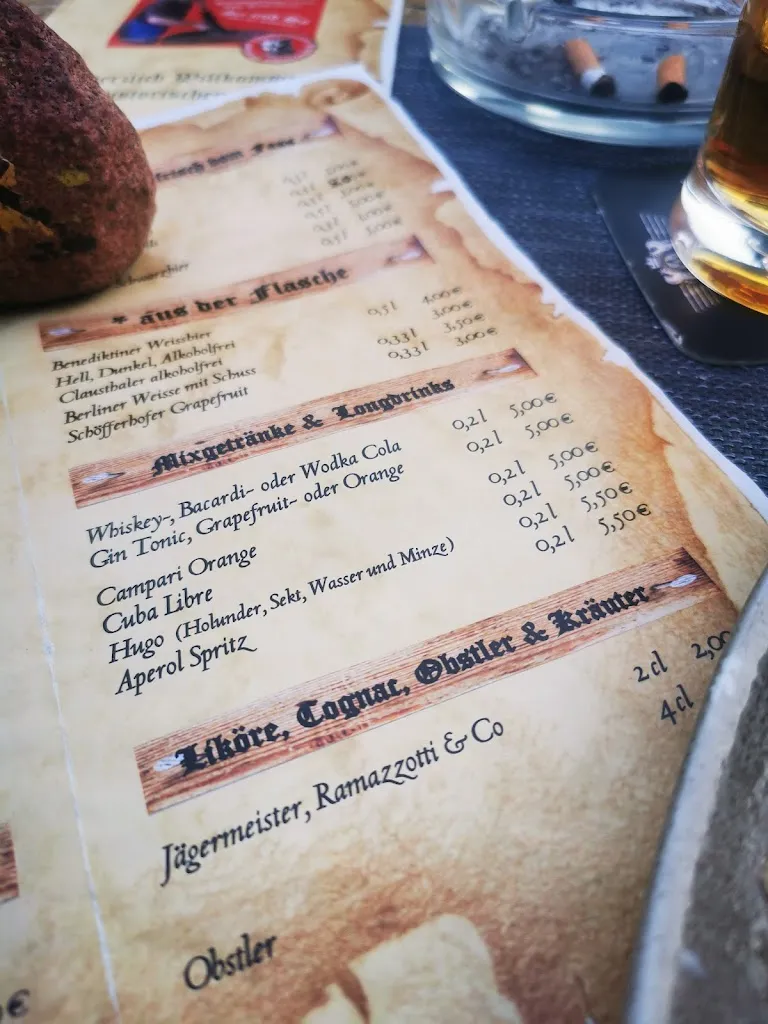 Herzlich Willkommen
frisch vom Fass
* aus der Flasche
Benediktiner Weissbier 0,5l 4,00€
Hell, Dunkel, Alkoholfrei
Clausthaler alkoholfrei 0,33l 3,00€
Berliner Weisse mit Schuss 0,33l 3,50€
Schöfferhofer Grapefruit 3,00€
Mixgetränke & Longdrinks
Whiskey-, Bacardi- oder Wodka Cola 0,2l 5,00€
Gin Tonic, Grapefruit- oder Orange 0,2l 5,00€
Campari Orange 0,2l 5,00€
Cuba Libre 0,2l 5,00€
Hugo (Holunder, Sekt, Wasser und Minze) 0,2l 5,50€
Aperol Spritz 0,2l 5,50€
Liköre, Cognac, Obstler & Kräuter
Jägermeister, Ramazzotti & Co 2cl 2,00
4cl
Obstler